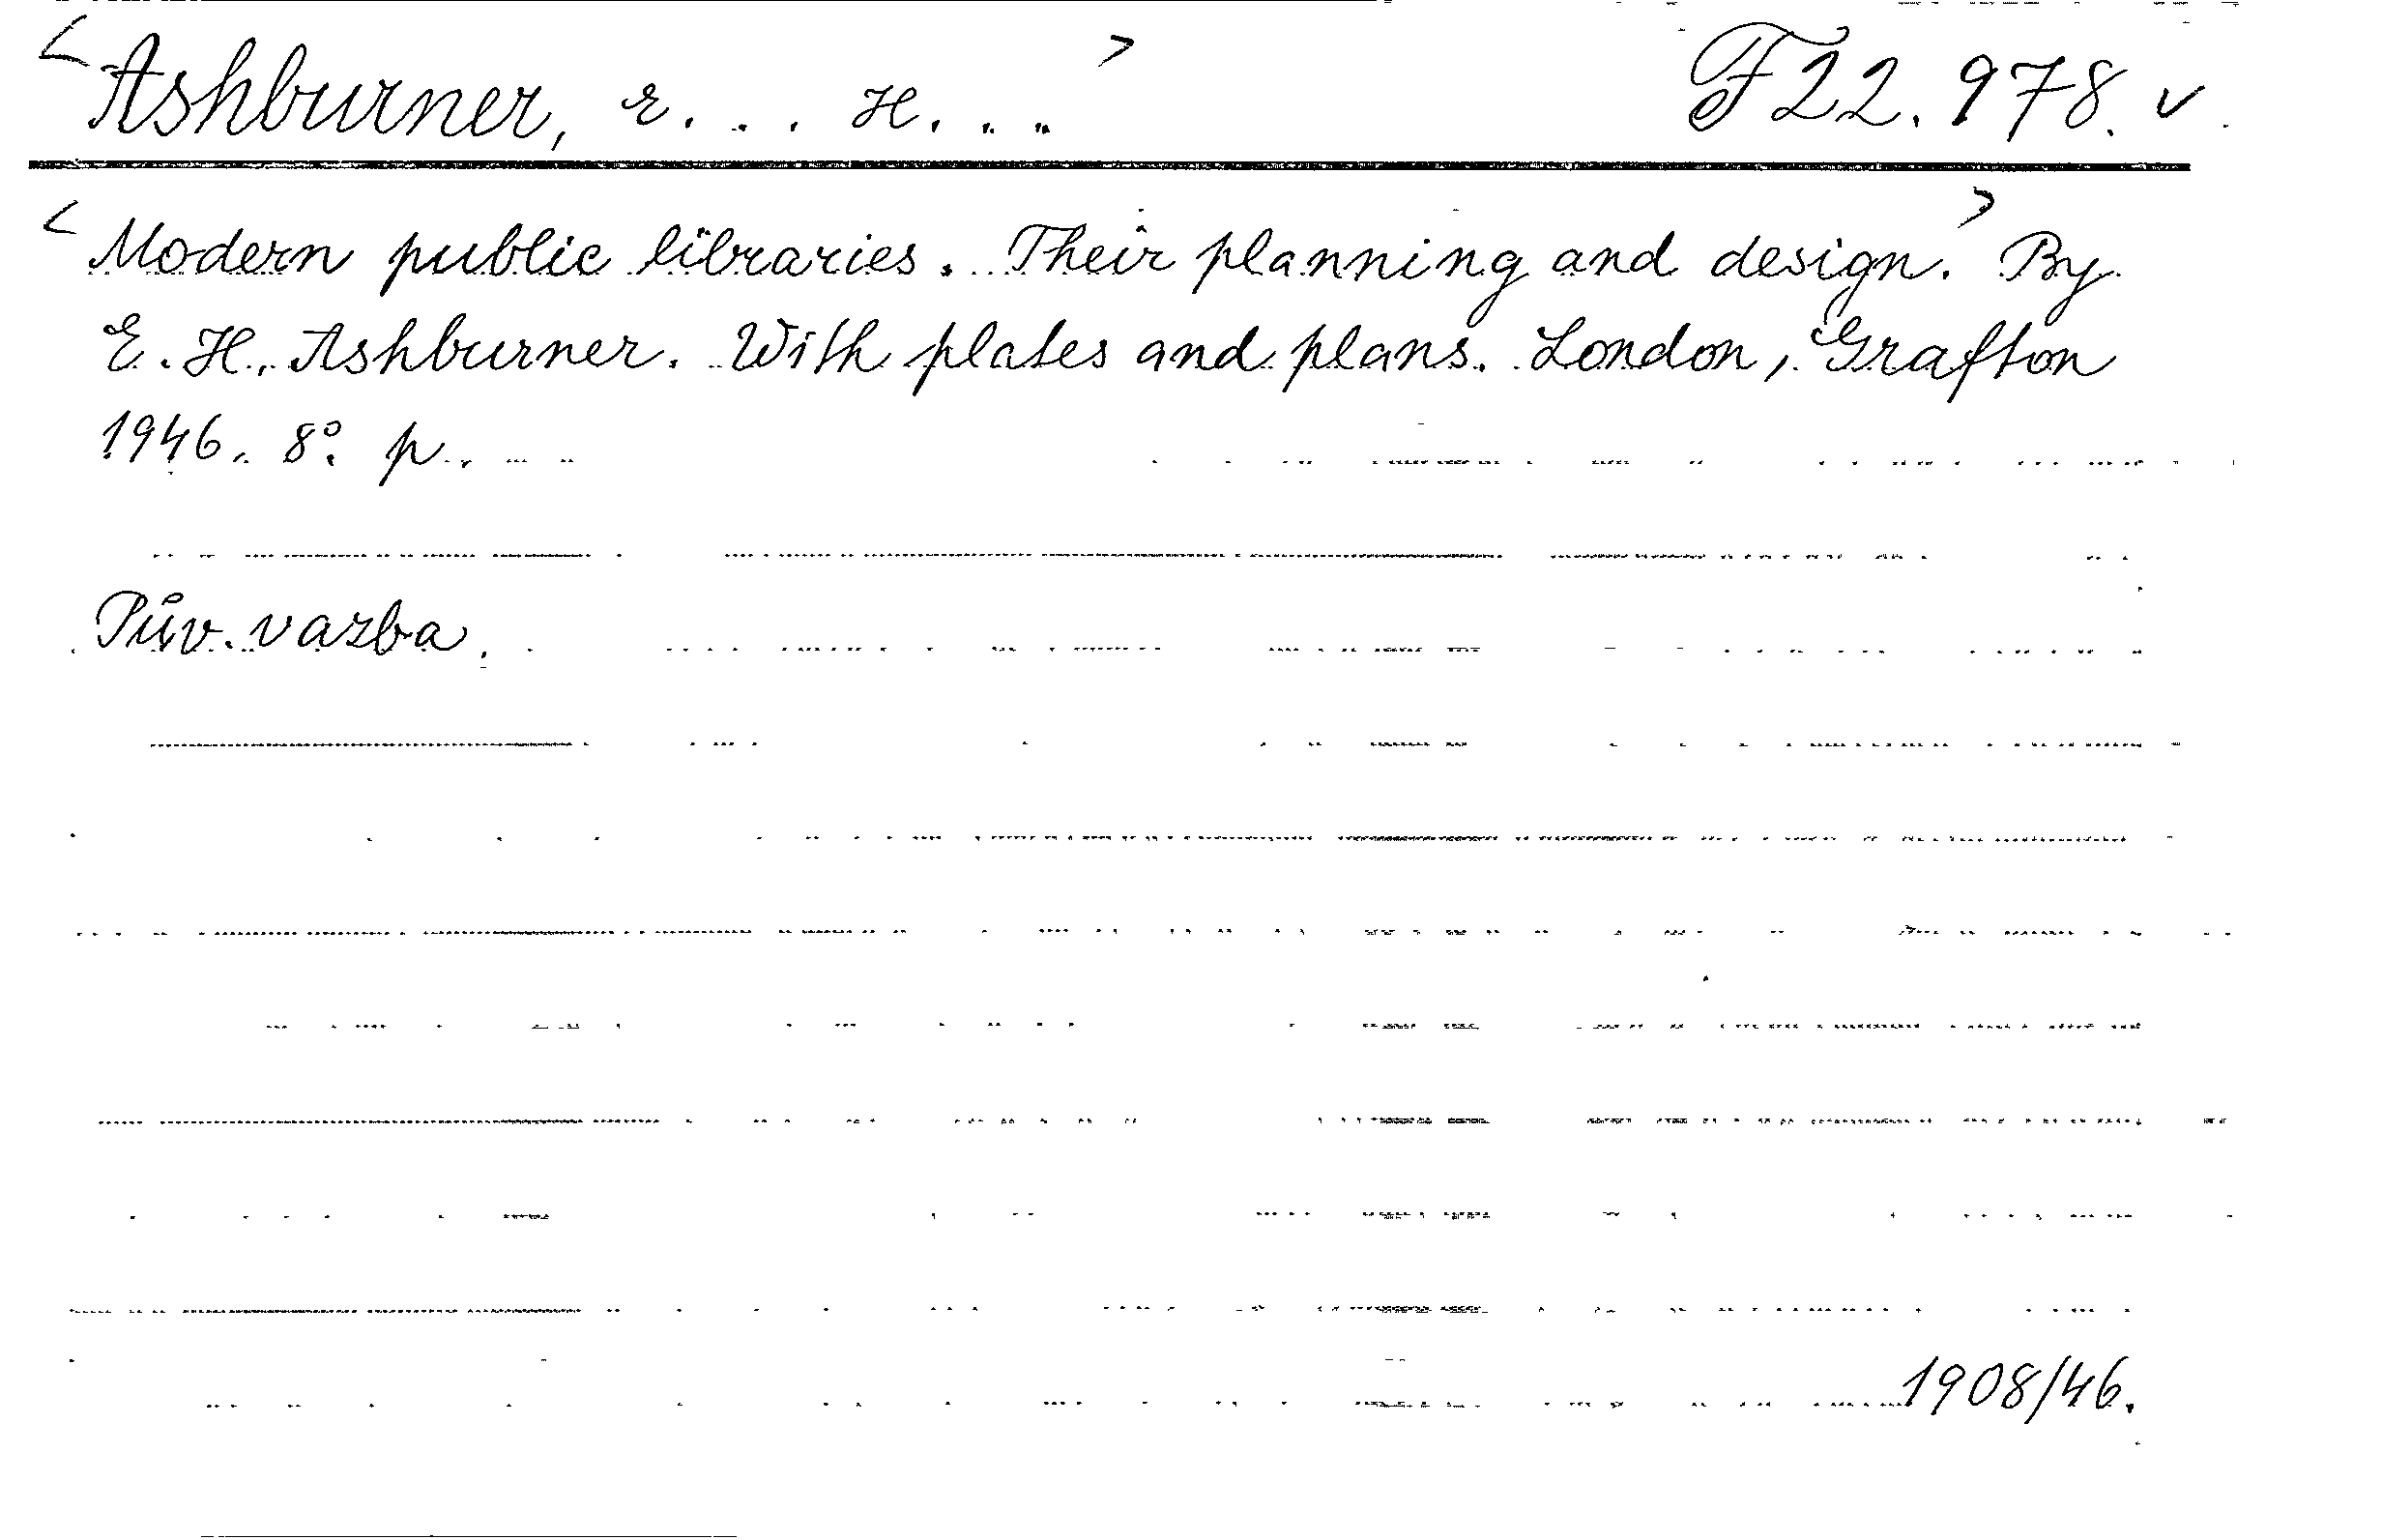 <Ashburner, E... H...> F 22.978. v
<Modern public libraries. Their planning and design.> By
E. H. Ashburner. With plates and plans. London, Grafton
1946. 8°. p.
Pův. vazba.
1908/46.